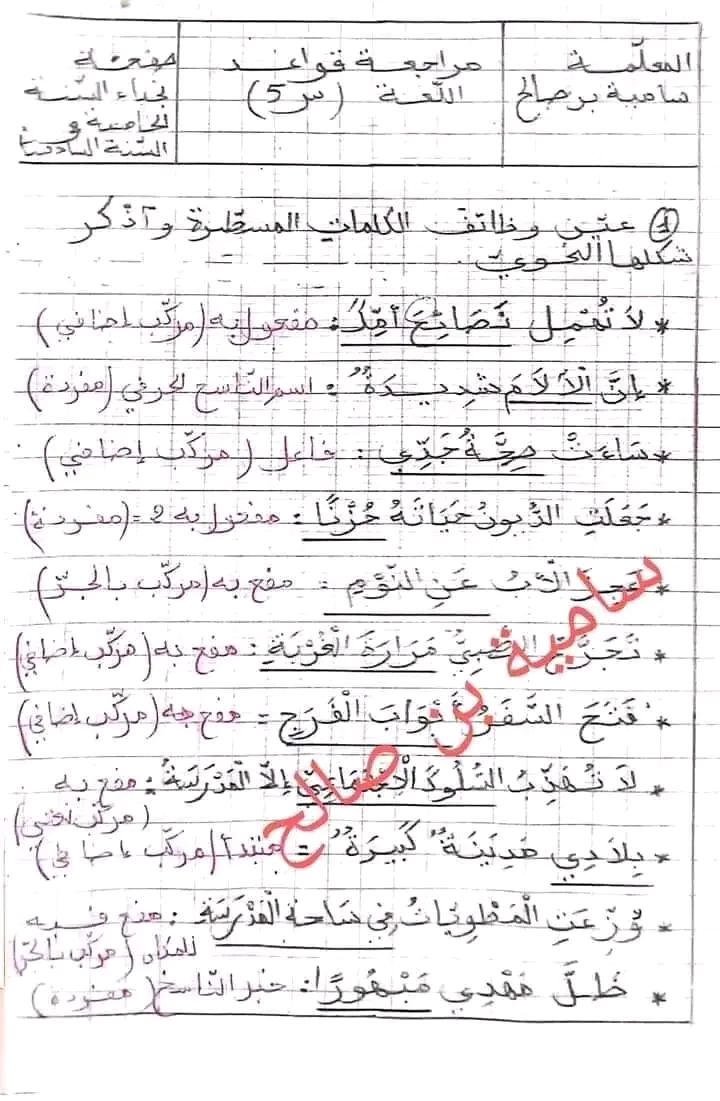 المعلّمة
سامية بن صالح
مراجعة قواعد
اللّغة (س5)
صفحة
نجباء السّنة
الخامسة و
السّنة السّادسة
① عيّن وظائف الكلمات المسطّرة وآذكر
شكلها النّحويّ.
* لاَ تُهْمِل نَصَائِحَ أُمِّكَ: مفعول به (مركّب إضافي)
* إنَّ الْآلاَمَ شَدِيدَةٌ: اسم النّاسخ الحرفي (مفردة)
* سَاءَتْ صِحَّةُ جَدِّي: فاعل (مركّب إضافي)
* جَعَلَتِ الدُّيونُ حَيَاتَهُ حُزْنًا: مفعول به 2= (مفردة)
* عَجِزَ الْأَبُ عَنِ النَّوْمِ: مفع به (مركّب بالجرّ)
* تَجَرَّعَ الصَّبِيُّ مَرَارَةَ الْغُرْبَةِ: مفع به (مركّب إضافي)
* فَتَحَ السَّفَرُ أَبْوَابَ الْفَرَجِ = مفع به (مركّب إضافي)
* لاَ تُهَذِّبُ السُّلُوكَ الْاِجْتِمَاعِيَّ إلاَّ الْمَدْرَسَةُ: مفع به
(مركّب نعتي)
* بِلاَدِي مَدِينَةٌ كَبِيرَةٌ = مبتدأ (مركّب إضافي)
* وُزِّعَتِ الْمَطْوِيَّاتُ فِي سَاحَةِ الْمَدْرَسَةِ: مفع فيه
للمكان (مركّب بالجرّ)
* ظَلَّ مَهْدِي مَبْهُورًا: خبر النّاسخ (مفردة)
سامية بن صالح